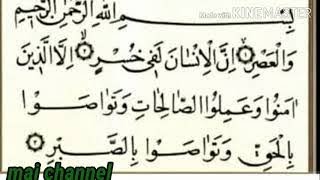 Made with KINEMASTER
بِسْمِ اللهِ الرَّحْمٰنِ الرَّحِيْمِ
وَالْعَصْرِ ۙ اِنَّ الْاِنْسَانَ لَفِيْ خُسْرٍ ۙ اِلَّا الَّذِيْنَ
اٰمَنُوْا وَعَمِلُوا الصَّالِحَاتِ وَتَوَاصَوْا
بِالْحَقِّ ۙ وَتَوَاصَوْا بِالصَّبْرِ
mai channel